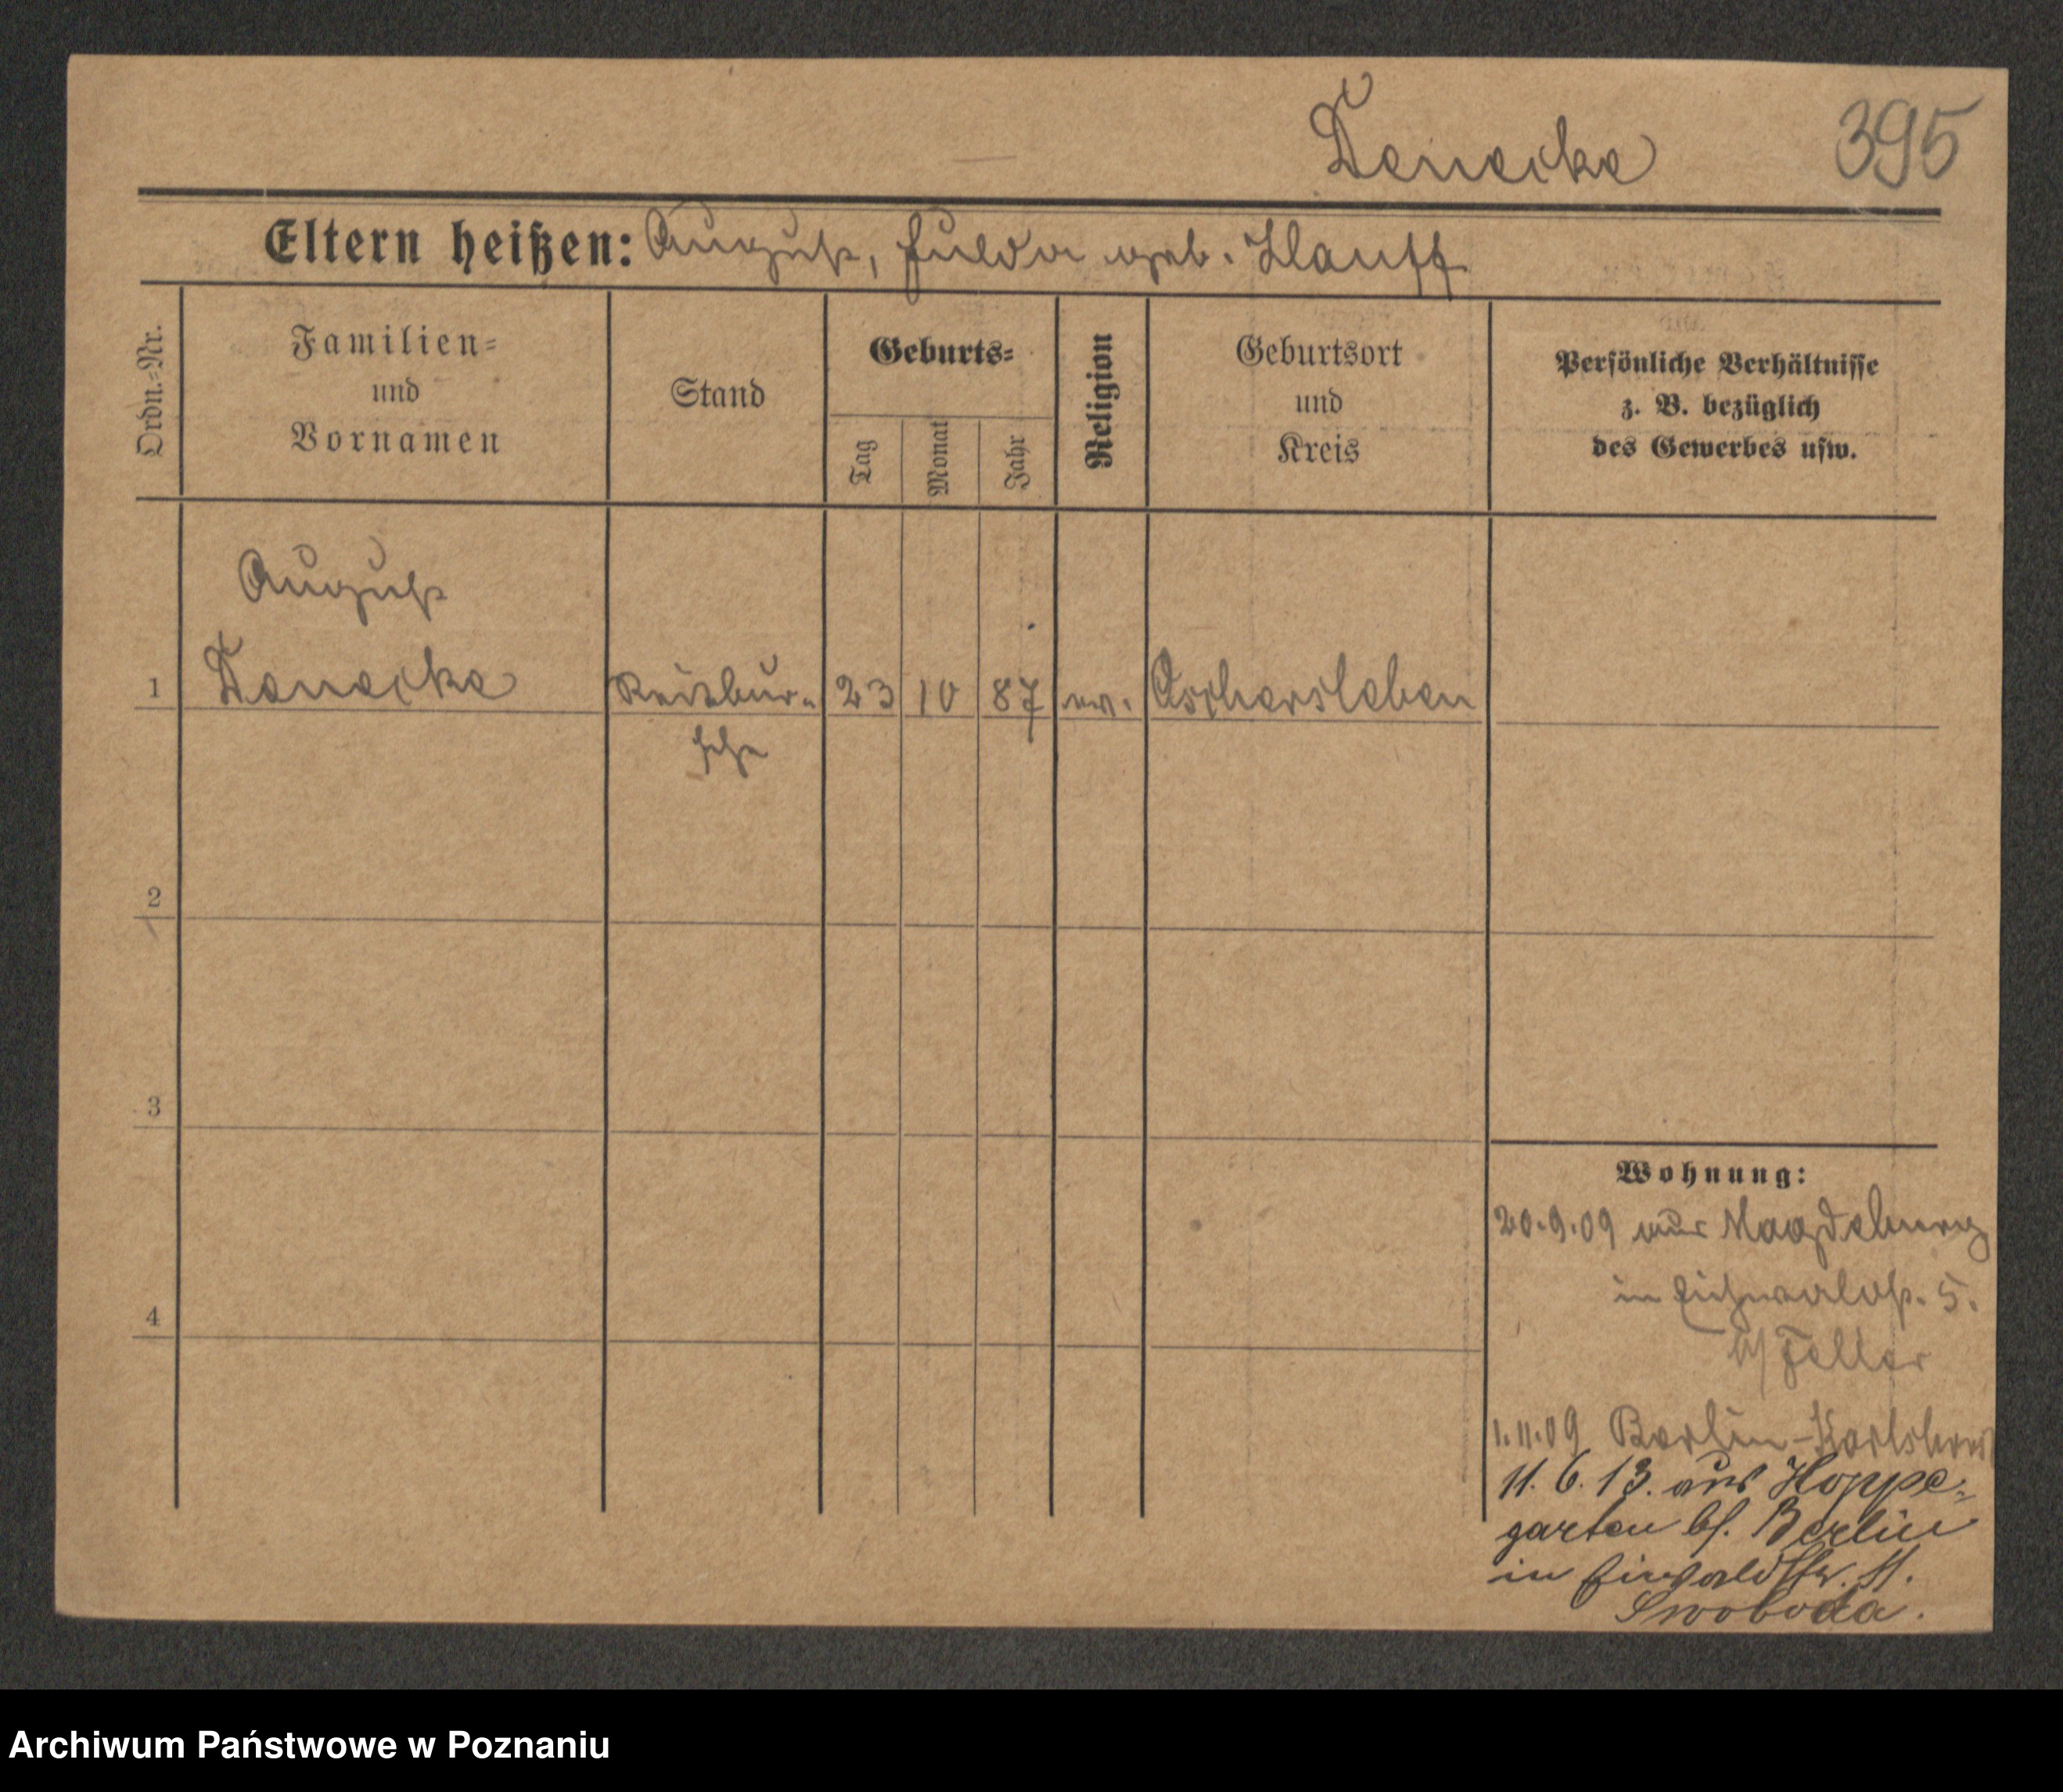 Denecke 395
Eltern heißen: August, Hulda geb. Hauff
Ordn.=Nr.
Familien=
und
Vornamen
Stand
Geburts=
Tag
Monat
Jahr
Religion
Geburtsort
und
Kreis
Persönliche Verhältnisse
z. B. bezüglich
des Gewerbes usw.
August
1 Denecke Reitbur- 23 10 87 ev. Aschersleben
sche
2
3
4
Wohnung:
20.9.09 aus Magdeburg
in Eichwaldstr. 5.
b/ Feller
1.11.09 Berlin-Karlshorst
11.6.13. aus Hoppe-
garten b/. Berlin
in Eichwaldstr. 11.
Swoboda.
Archiwum Państwowe w Poznaniu